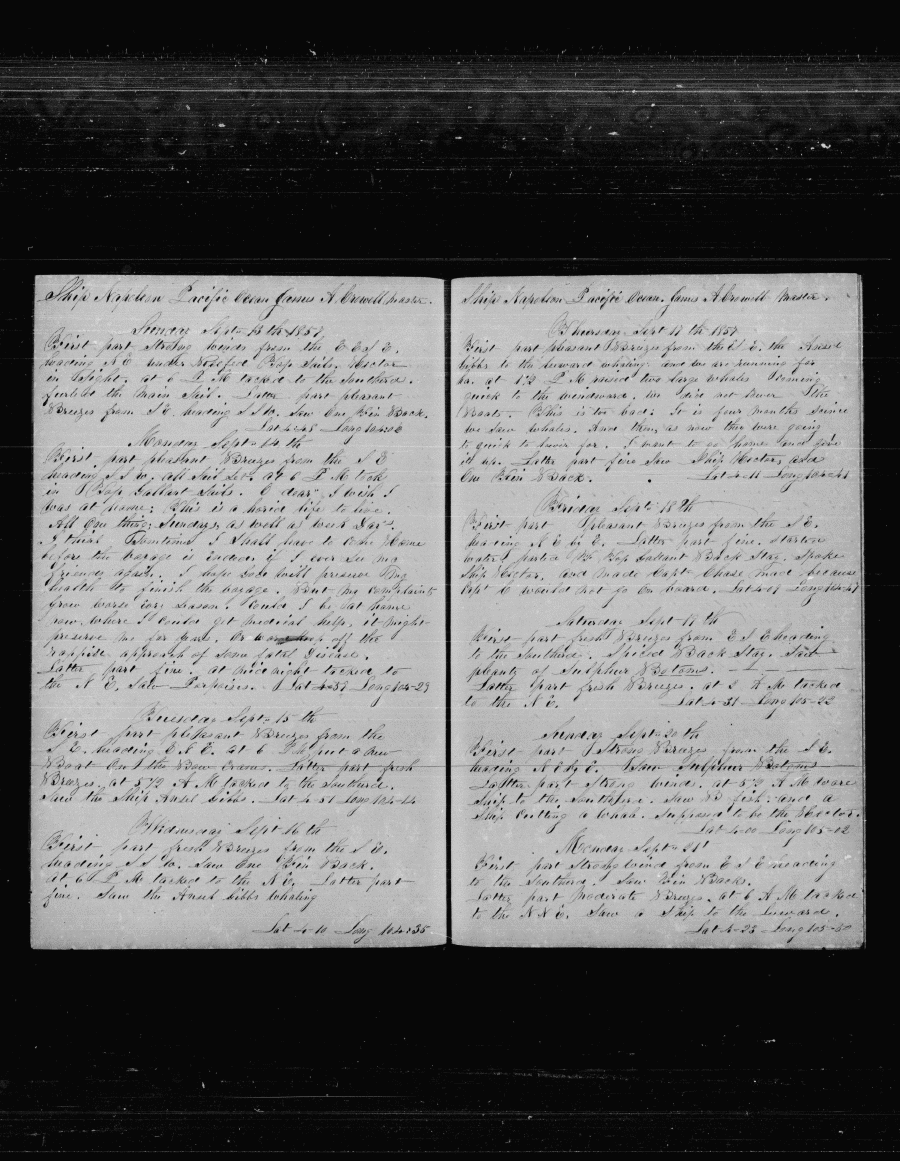 Ship Napoleon Pacific Ocean James A. Crowell Master.
Sunday Sept 13th 1857
First part strong winds from the E S E.
heading N E under Reefed Top Sails. Hector
in Sight. at 6 P M tacked to the Southard.
furled the Main Sail. Latter part pleasant
Breezes from S E heading S S W. Saw One Fin Back.
Lat 4-48 Long 104
Monday Sept 14th
First part pleasant Breezes from the S E
heading S S W. all Sail Set. at 6 P M took
in Top Gallant Sails. O dear I wish I
was at home; This is a life to live.
All One thing; Sundays as well as week Day
I think Sometimes I Shall have to Come Home
before the voyage is ended if I ever See my
Friends again. I hope God will preserve my
health to finish the voyage. But my Complaints
grow worse Season. Could I be at home
now, where I could get medical help, it might
preserve me for years. Or off the
approach of Some fatal Disease.
Latter part fine. at midnight tacked to
the N E. Saw Porpoises. Lat 4-39 Long 105-29
Tuesday Sept 15th
First part pleasant Breezes from the
S E. heading E N E. at 6 put a new
Boat On the Bow Cranes. Latter part fresh
Breezes. at 5 1/2 A M tacked to the Southard.
Saw the Ship Ansel Gibbs. Lat 4-51 Long 105-14
Wednesday Sept 16th
First part fresh Breezes from the S E.
heading S S W. Saw One Fin Back.
at 6 P M tacked to the N E. Latter part
fine. Saw the Ansel Gibbs whaling
Lat 4-10 Long 104-35
Ship Napoleon Pacific Ocean. James A Crowell Master.
Thursday Sept 17th 1857
First part pleasant Breezes from the S E. the Ansel
Gibbs to the leeward whaling. and we are running for
her. at 1 1/2 P M raised two large whales Going
quick to the windward. we Did not lower the
Boats. This is too bad; It is four months Since
we Saw whales. And then, as now they were going
to quick to lower for. I want to go home and give
it up. Latter part fine Saw Ship Hector, and
One Fin Back. Lat 4-11 Long 104-41
Friday Sept 18th
First part Pleasant Breezes from the S E.
heading N E by E. Latter part fine. Starbord
watch parted Top Gallant Back Stay. Spoke
Ship Hector. and made Capt Chase mad because
Capt C would not go On board. Lat 4-07 Long 104-47
Saturday Sept 19th
First part fresh Breezes from E S E heading
to the Southard. Spliced Back Stay. Saw
plenty of Sulphur Botoms.
Latter part fresh Breezes. at 2 A M tacked
to the N E. Lat 4-31 Long 105-22
Sunday Sept 20th
First part Strong Breezes from the S E.
heading N E by E. Saw Sulphur Botoms
Latter part Strong winds. at 5 1/2 A M wore
Ship to the Southard. Saw B fish. and a
Ship Cutting a whale. Supposed to be the Hector.
Lat 4-00 Long 105-02
Monday Sept 21st
First part Strong wind from E S E heading
to the Southard. Saw Fin Backs.
Latter part Moderate Breezes. at 6 A M tacked
to the N N E. Saw a Ship to the Leeward.
Lat 4-23 Long 105-50